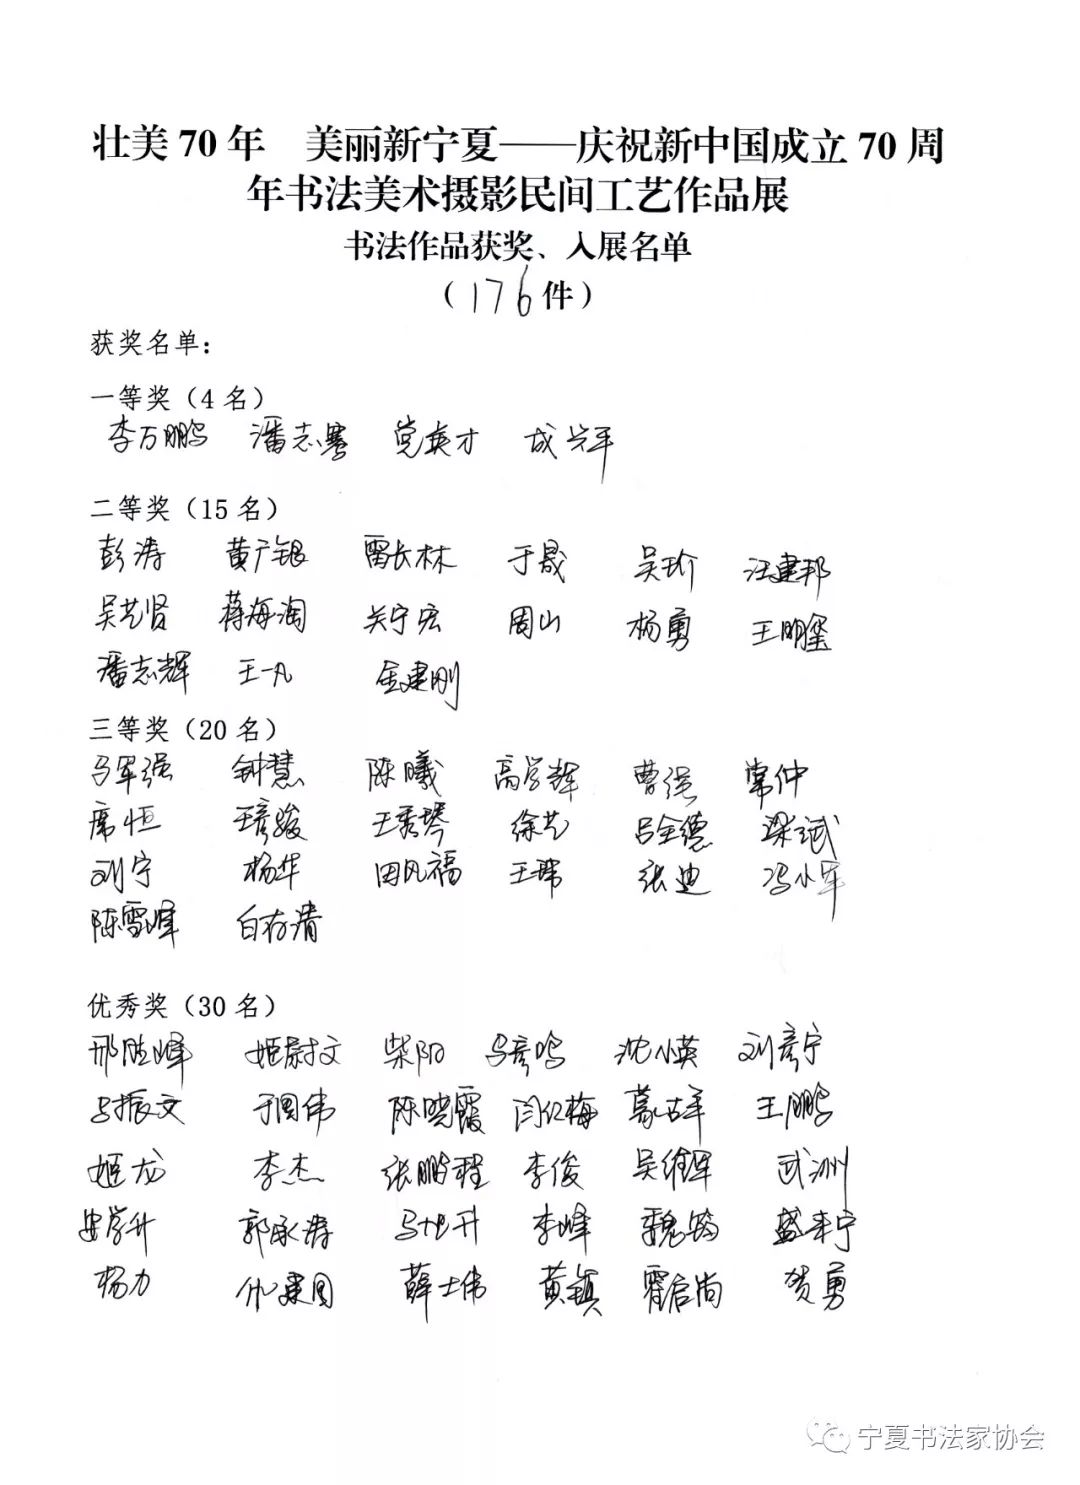 壮美70年 美丽新宁夏——庆祝新中国成立70周
年书法美术摄影民间工艺作品展
书法作品获奖、入展名单
（176件）
获奖名单：
一等奖（4名）
李万鹏 潘志骞 党英才 成兴平
二等奖（15名）
彭涛 黄广银 雷长林 于晟 吴玠 汪建邦
吴艺贤 蒋海淘 关宁宏 周山 杨勇 王鹏玺
潘志辉 王一凡 金建刚
三等奖（20名）
马军强 钟慧 陈曦 高学辉 曹强 常仲
席恒 王彦骏 王秀琴 徐艺 吕全德 梁斌
刘宁 杨华 田凤福 王玮 张迪 冯小军
陈雪峰 白存清
优秀奖（30名）
邢胜峰 姬尉文 柴阳 马彦鸣 沈小英 刘彦宁
马振文 于国伟 陈晓霞 闫红梅 慕吉军 王鹏
姬龙 李杰 张鹏程 李俊 吴维军 武洲
史学升 郭永涛 马旭升 李峰 魏筠 盛来宁
杨力 仇建国 薛士伟 黄镇 霍启尚 贺勇
宁夏书法家协会